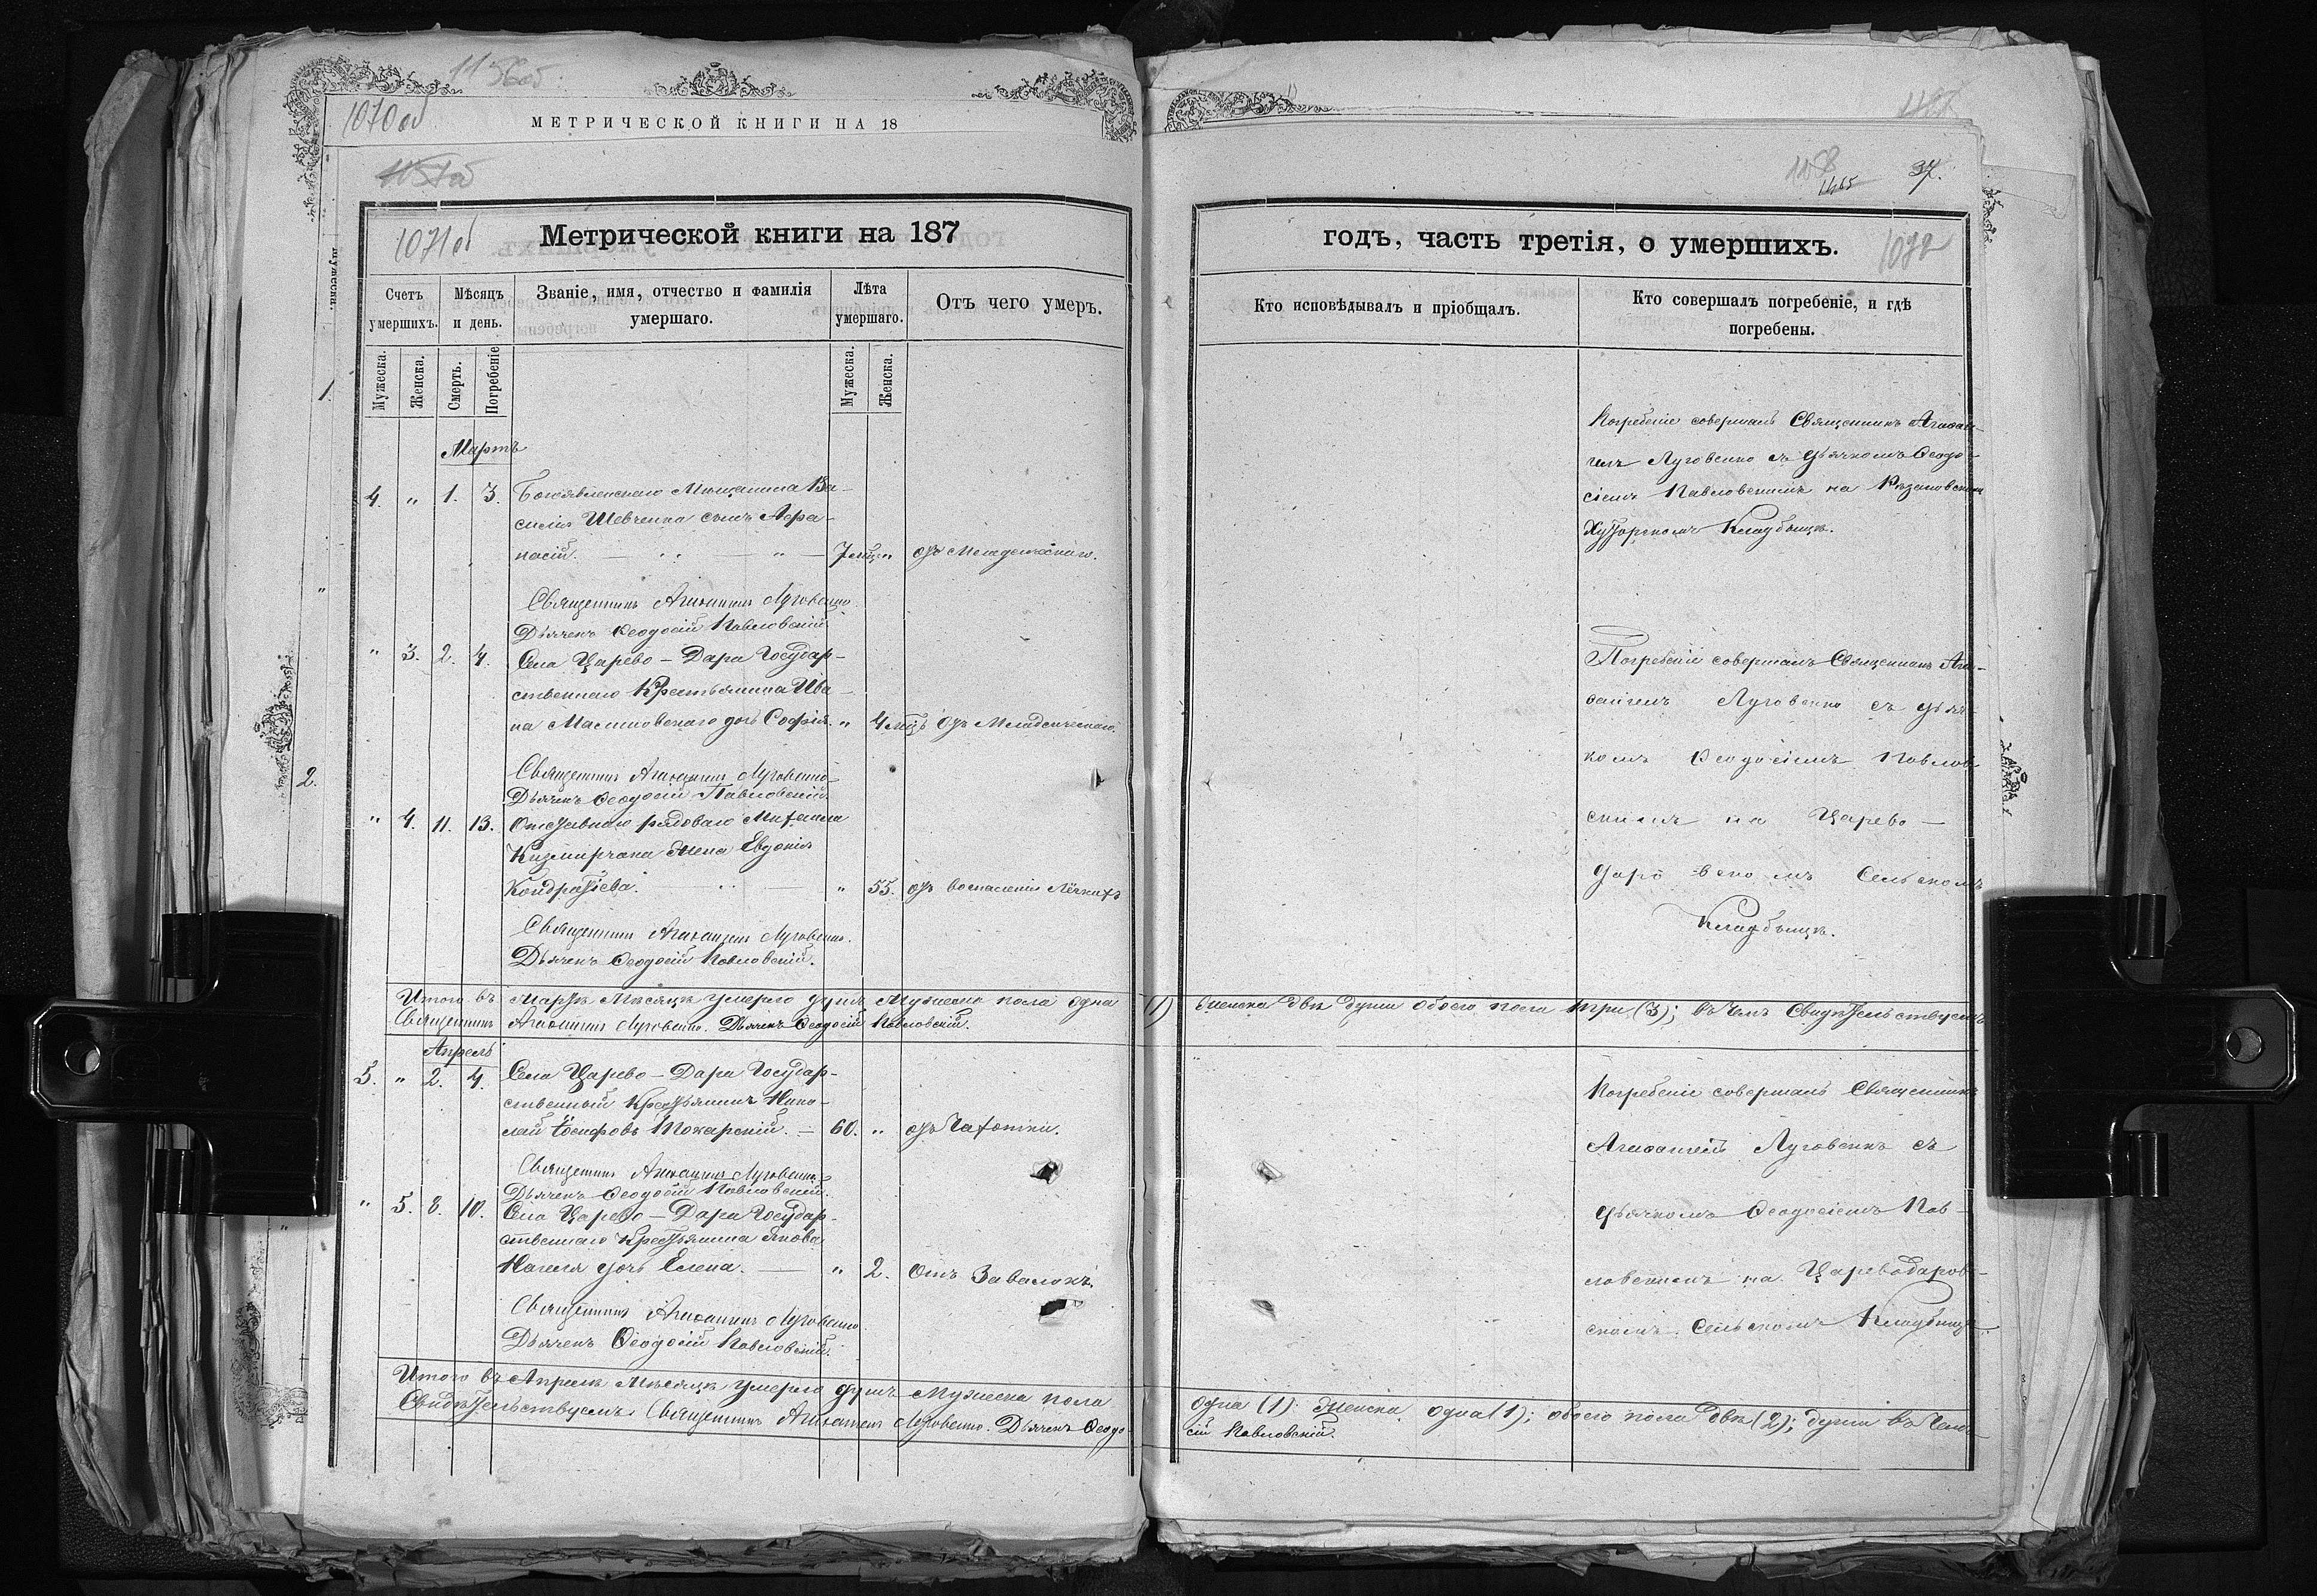 1156об
1070об
МЕТРИЧЕСКОЙ КНИГИ НА 18
1157об
1071об
Метрической книги на 187
Счетъ умершихъ.
Мѣсяцъ и день.
Званіе, имя, отчество и фамилія умершаго.
Лѣта умершаго.
Отъ чего умеръ.
Мужеска.
Женска.
Смерть.
Погребеніе
Мужеска.
Женска.
Мартъ
4. " 1. 3. Богоявленскаго Мѣщанина Ва-
силія Шевченка сынъ Афа-
насій. — " — " — 7 мѣц. " отъ Младенческаго.
Священникъ Агафангелъ Луговенко
Дьячекъ Ѳеодосій Павловскій
" 3. 2. 4. Села Царево-Дара Государ-
ственнаго Крестьянина Ива-
на Малиновскаго дочь Софія. " 4 мѣц. отъ Младенческаго.
Священникъ Агафангелъ Луговенко
Дьячекъ Ѳеодосій Павловскій.
" 4. 11. 13. Отставнаго рядоваго Михаила
жена Евдокія
Кондратіева. — " — " 55. отъ воспаленія Лёгкихъ
Священникъ Агафангелъ Луговенко.
Дьячекъ Ѳеодосій Павловскій.
Итого въ Мартѣ Мѣсяцѣ умерло душъ Мужеска пола одна
Священникъ Агафангелъ Луговенко. Дьячекъ Ѳеодосій Павловскій.
Апрель
5. " 2. 4. Села Царево-Дара Государ-
ственный Крестьянинъ Нико-
лай Іосифовъ Токарскій. — 60. " отъ Чахотки.
Священникъ Агафангелъ Луговенко
Дьячекъ Ѳеодосій Павловскій.
" 5. 8. 10. Села Царево-Дара Государ-
ственнаго Крестьянина Якова
дочь Елена. — " 2. Отъ Завалокъ.
Священникъ Агафангелъ Луговенко
Дьячекъ Ѳеодосій Павловскій.
Итого въ Апрелѣ Мѣсяцѣ умерло душъ Мужеска пола
Свидѣтельствуемъ Священникъ Агафангелъ Луговенко. Дьячекъ Ѳеодо-
1158
1165
37.
годъ, часть третія, о умершихъ.
1072
Кто исповѣдывалъ и пріобщалъ.
Кто совершалъ погребеніе, и гдѣ погребены.
Погребеніе совершалъ Священникъ Агафан-
гелъ Луговенко съ дьячкомъ Ѳеодо-
сіемъ Павловскимъ на
Хуторскомъ Кладбищѣ.
Погребеніе совершалъ Священникъ Ага-
фангелъ Луговенко съ дьяч-
комъ Ѳеодосіемъ Павлов-
скимъ на Царево-
даровскомъ Сельскомъ
Кладбищѣ.
(1) женска двѣ души обоего пола три (3); въ чемъ Свидѣтельствуемъ
Погребеніе совершалъ Священникъ
Агафангелъ Луговенко съ
дьячкомъ Ѳеодосіемъ Пав-
ловскимъ на Цареводаров-
скомъ Сельскомъ Кладбищѣ.
одна (1); Женска одна (1); обоего пола двѣ (2); души въ чемъ
сій Павловскій.